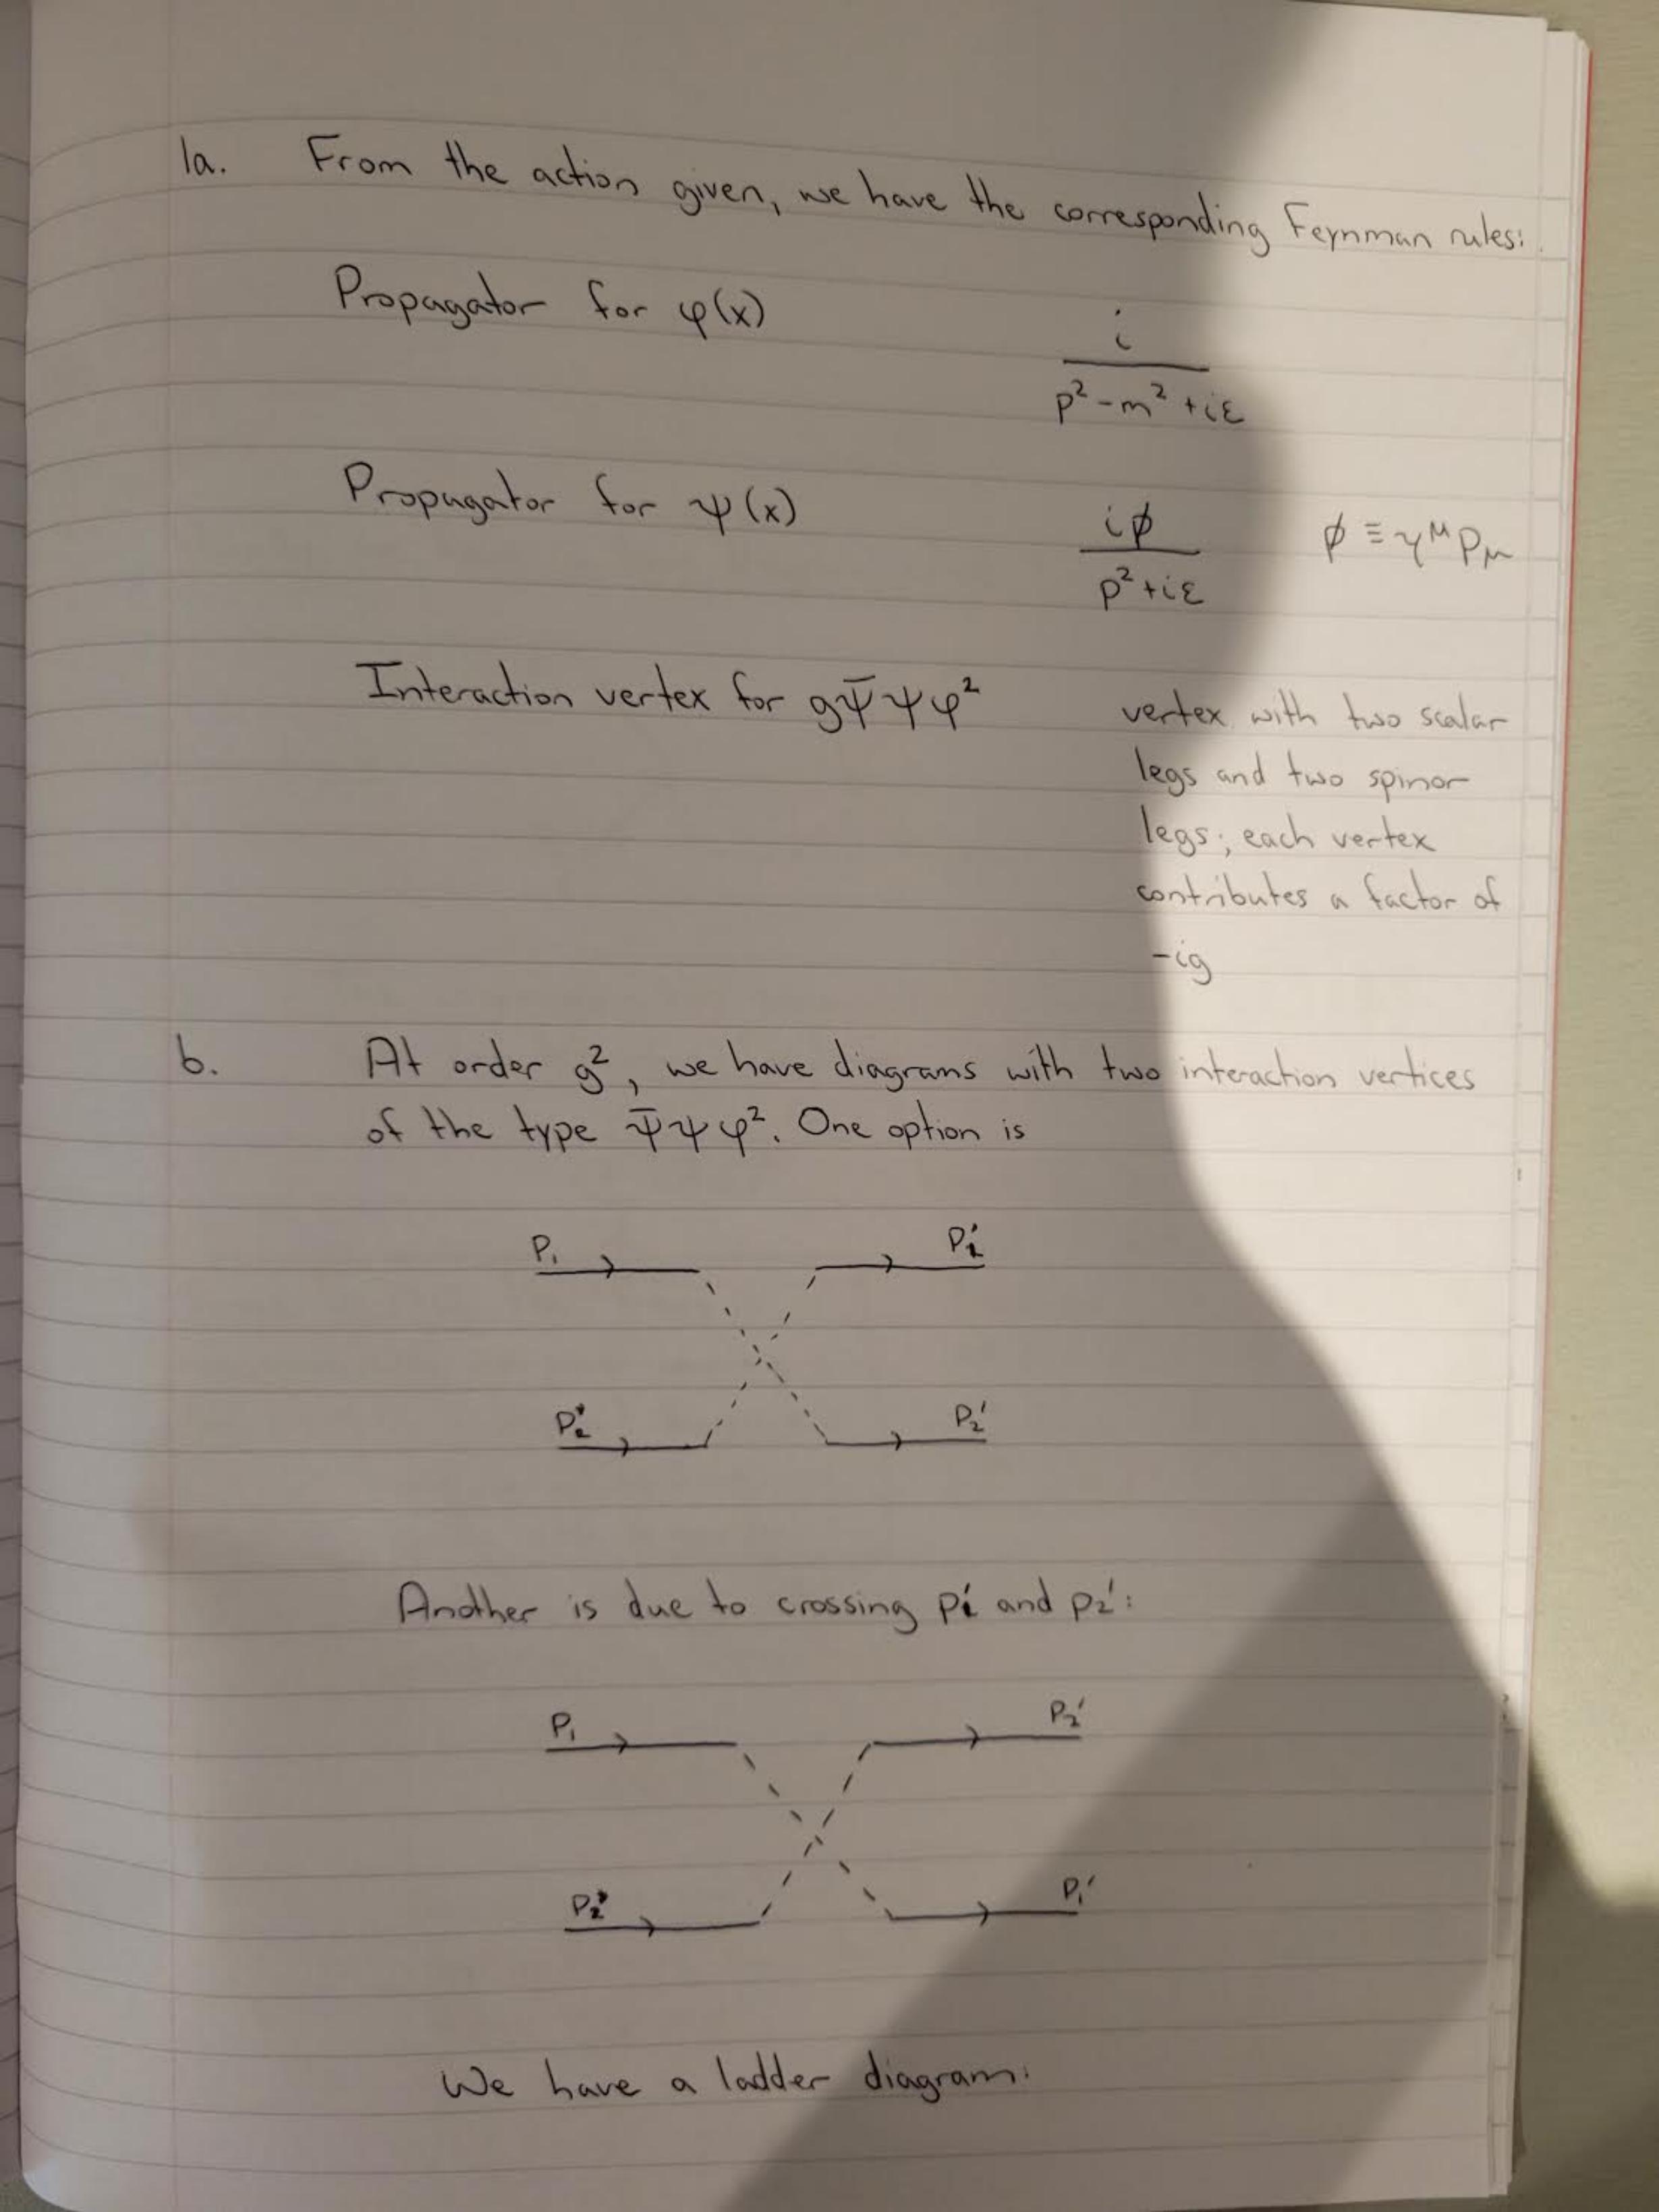 1a. From the action given, we have the corresponding Feynman rules:
Propagator for φ(x) i
p² - m² + iε
Propagator for ψ(x) ip̸ p̸ ≡ γ^μ p_μ
p² + iε
Interaction vertex for gψ̄ψφ² vertex with two scalar
legs and two spinor
legs; each vertex
contributes a factor of
-ig
b. At order g², we have diagrams with two interaction vertices
of the type ψ̄ψφ². One option is
p₁ p₁'
p₂ p₂'
Another is due to crossing p₁' and p₂':
p₁ p₂'
p₂ p₁'
We have a ladder diagram: